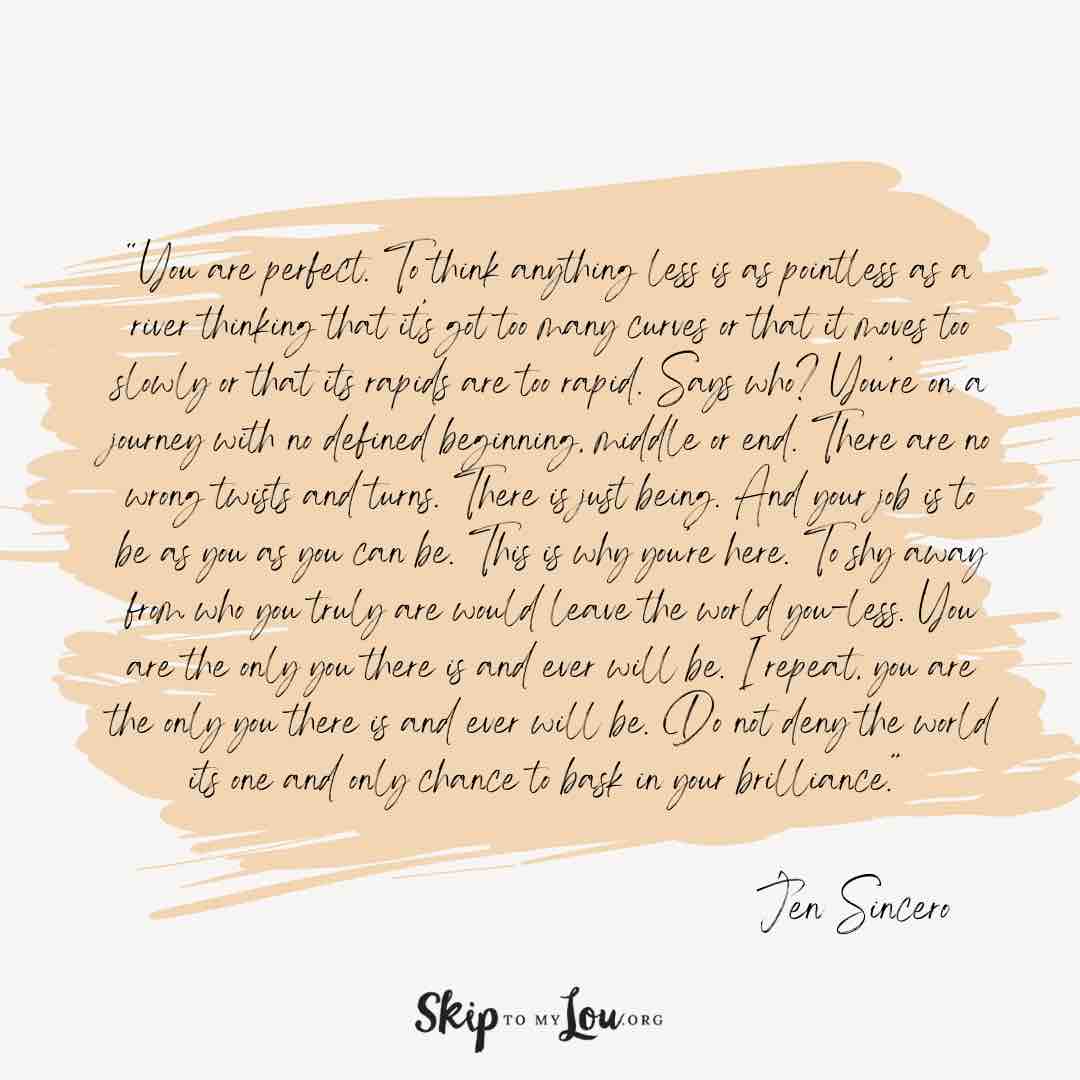 "You are perfect. To think anything less is as pointless as a
river thinking that it's got too many curves or that it moves too
slowly or that its rapids are too rapid. Says who? You're on a
journey with no defined beginning, middle or end. There are no
wrong twists and turns. There is just being. And your job is to
be as you as you can be. This is why you're here. To shy away
from who you truly are would leave the world you-less. You
are the only you there is and ever will be. I repeat, you are
the only you there is and ever will be. Do not deny the world
its one and only chance to bask in your brilliance."
Jen Sincero
Skip TO MY Lou.ORG